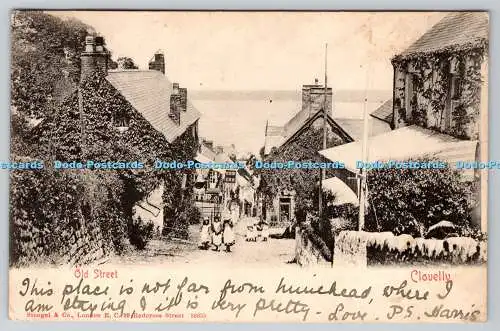 Dodo-Postcards Dodo-Postcards Dodo-Postcards Dodo-Postcards Dodo-Postcards
Old Street
Clovelly
This place is not far from minehead, where I
am staying & it is very pretty - Love. P.S. Harris
Stengel & Co., London E. C. 39 Redcross Street